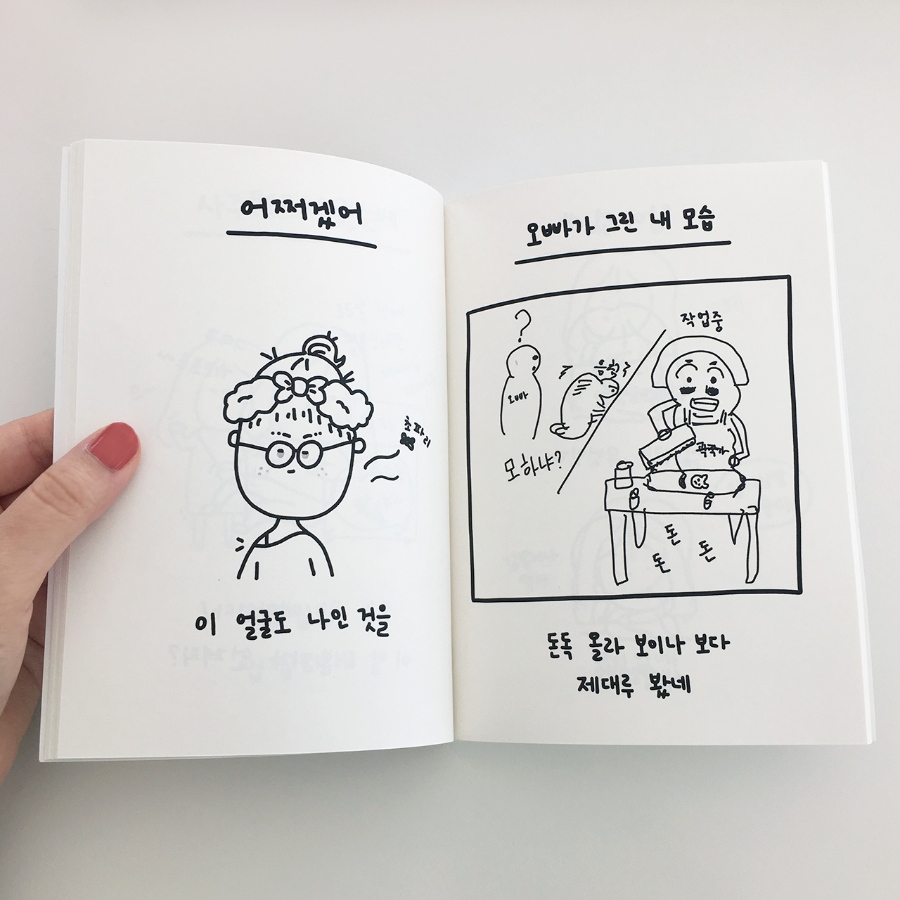 어쩌겠어
초파리
이 얼굴도 나인 것을
오빠가 그린 내 모습
?
작업중
오빠
모하냐?
돈
돈
돈
돈독 올라 보이나 보다
제대루 봤네